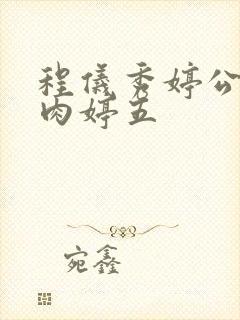 程儀秀婷公
肉婷五
宛鑫